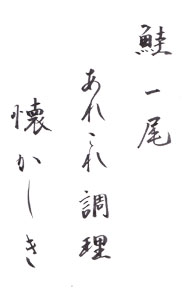 鮭一尾
あれこれ調理
懐かしき